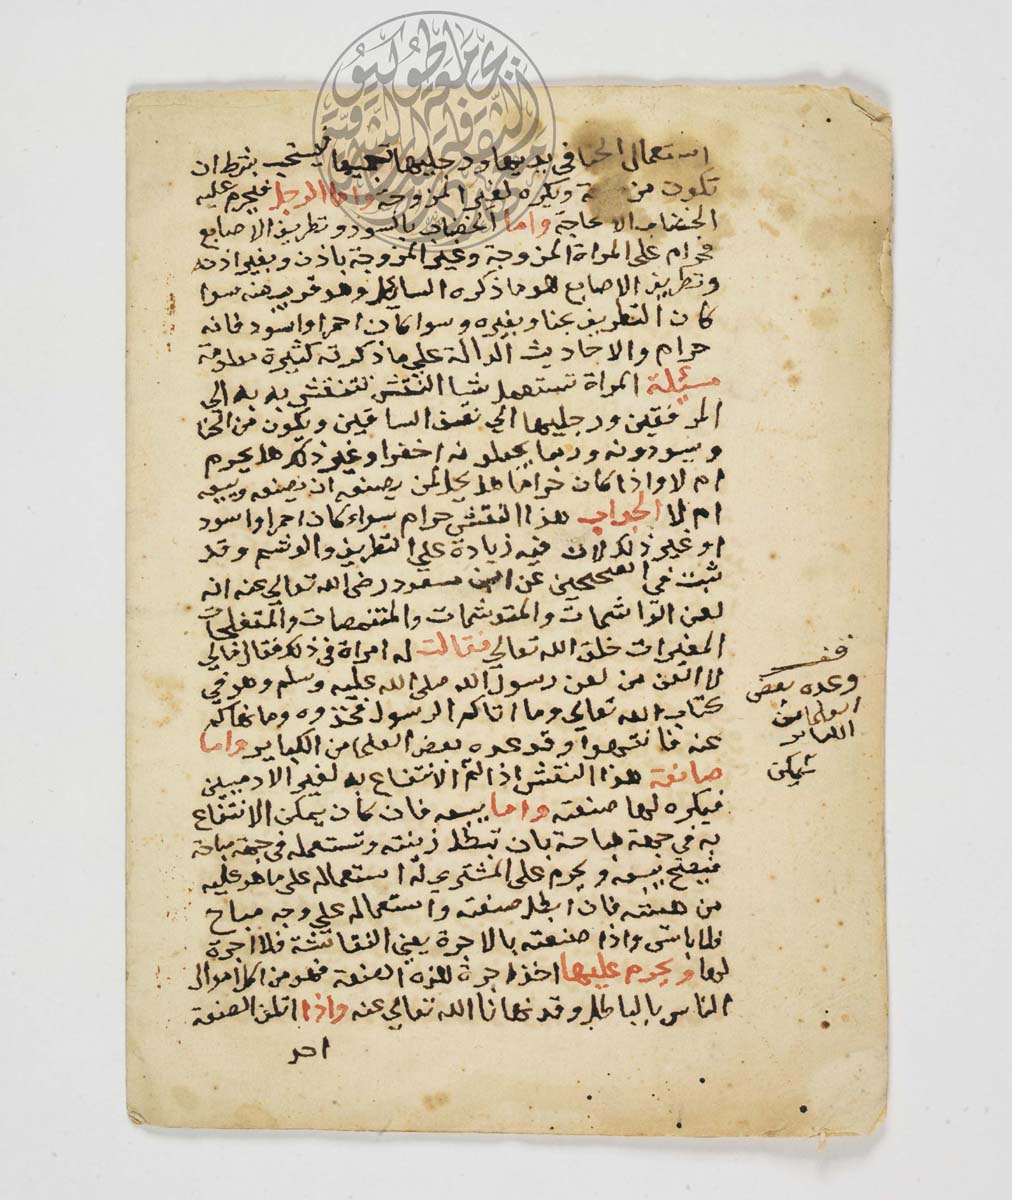 استعمال الحنا في يديها ورجليها تجميعا فيستحب بشرط ان
تكون من وتكره لغير المزوجة واما الرجل فيحرم عليه
الخضاب الا لحاجة واما الخضاب بالسود وتطريف الاصابع
فحرام على المراة المزوجة وغير المزوجة باذن وبغير اذن
وتطريف الاصابع هو ما ذكره السايل وهو قريب منه سوا
كان التطريف بحنا وبغيره وسوا كان احمر او اسود فانه
حرام والاحاديث الدالة علي ما ذكرته كثيرة معلومة
مسئلة المراة تستعمل شيا النقش تنقش به يديه الي
المرفقين ورجليها الي نصف الساقين ويكون من الحنا
ويسودونه وربما يجعلونه اخضر او غير ذلك هل يحرم
ام لا واذا كان حراما هل يحل لمن يصنعه ان يصنعه ويبيعه
ام لا الجواب هذا النقش حرام سواء كان احمر او اسود
او غير ذلك لان فيه زيادة علي التطريف والوشم وقد
ثبت في الصحيحين عن ابن مسعود رضي الله تعالي عنه انه
لعن الواشمات والمتوشمات والمتنمصات والمتفلجات
المغيرات خلق الله تعالي فقالت له امراة في ذلك فقال مالي
لا العن من لعن رسول الله صلي الله عليه وسلم وهو في
كتاب الله تعالي وما اتاكم الرسول فخذوه وما نهاكم
عنه فانتهوا وقد عده بعض العلما من الكباير واما
صانعة هذا النقش اذا لم الانتفاع به لغير الادميين
فيكره لها صنعته واما بيعه فان كان يمكن الانتفاع
به في جهة مباحة بان تبطل زينته وتستعمله في جهة مباحة
فيصح بيعه ويحرم على المشتري له استعماله على ما هو عليه
من هيئته فان ابطل صنعته واستعماله علي وجه مباح
فلا باس واذا صنعته بالاجرة يعني النقاشة فلا اجرة
لها ويحرم عليها اخذ اجرة لهذه الصنعة فهو من اكل اموال
الناس بالباطل وقد نهانا الله تعالي عنه واذا اتلف الصنعة
احد
قف
وعده بعض
العلما من
الكباير
يمكن